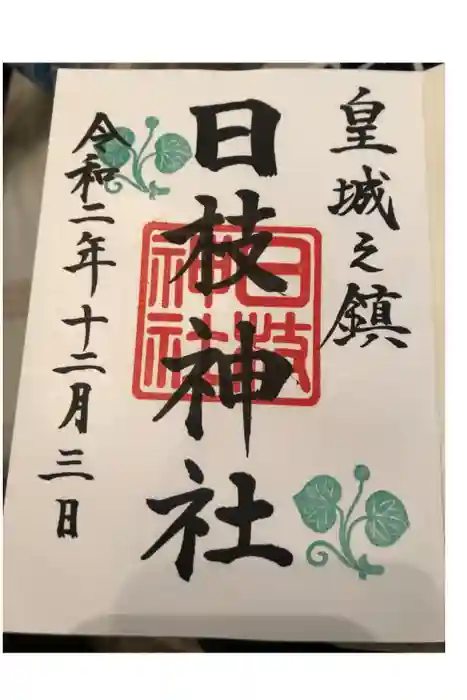 皇城之鎮
日枝神社
日枝
神社
令和二年十二月三日